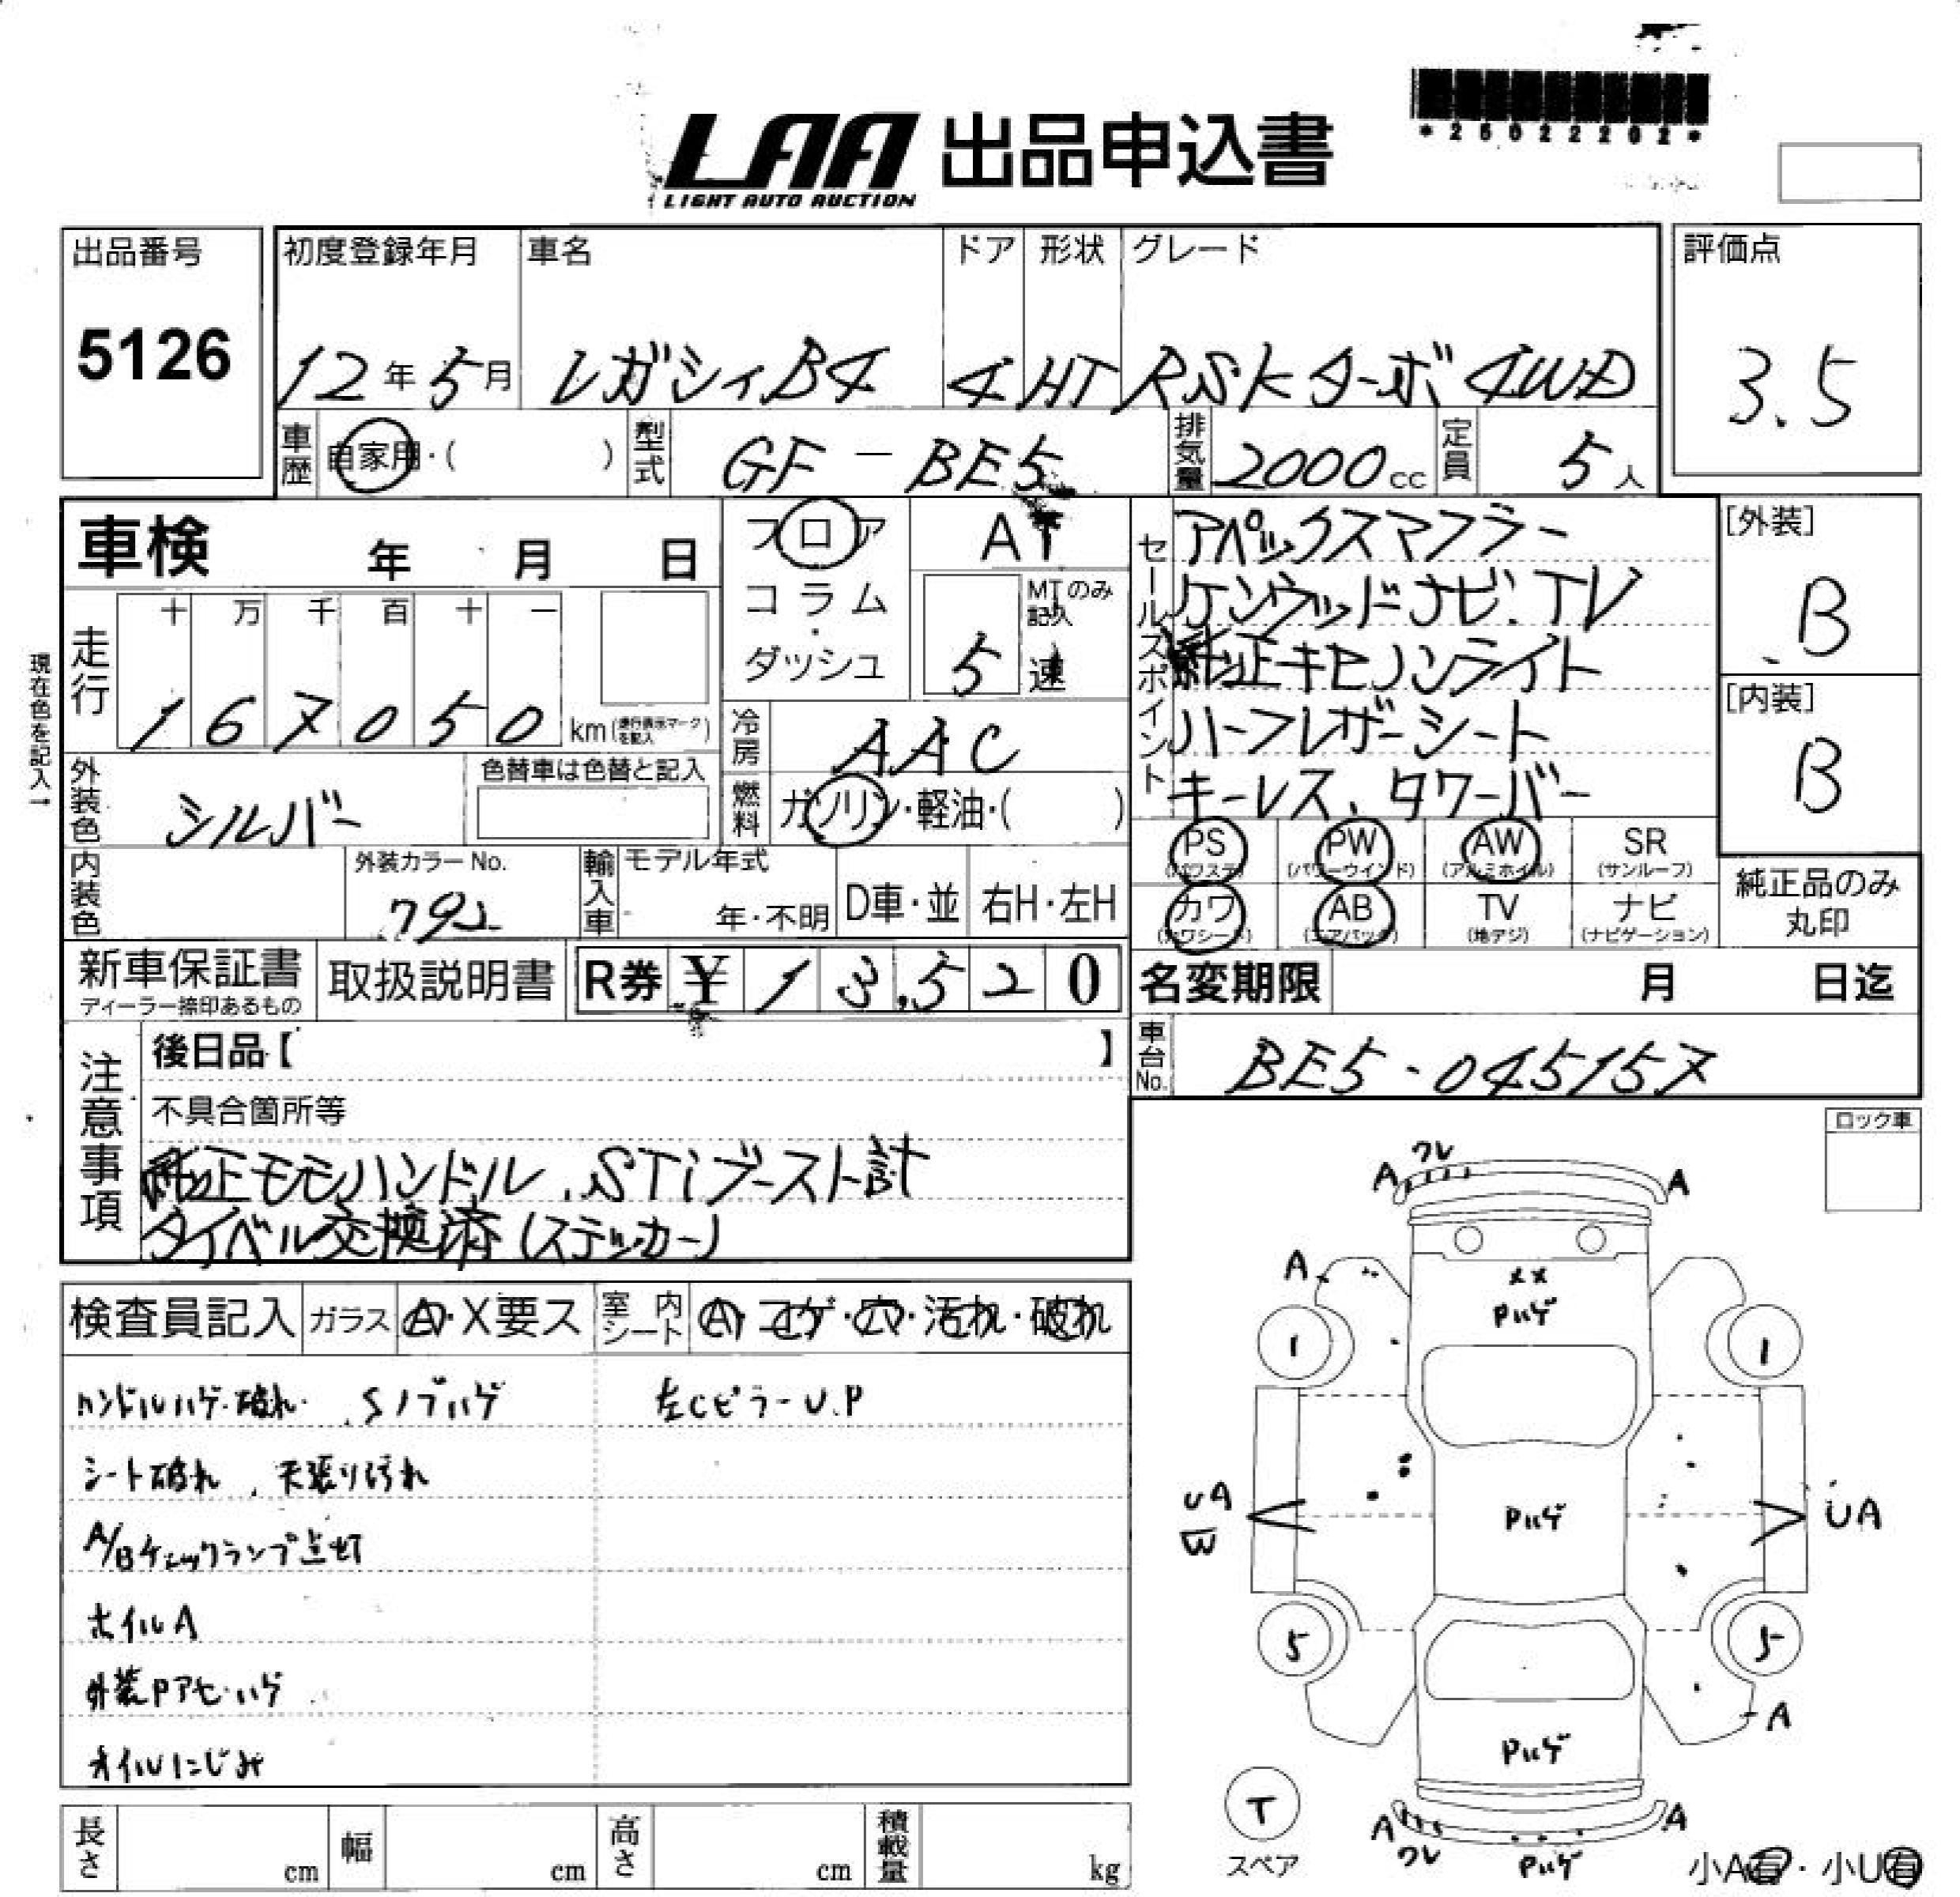 LAA 出品申込書
LIGHT AUTO AUCTION
*25022202*
出品番号
5126
初度登録年月 車名 ドア 形状 グレード
12年5月 レガシィB4 4 HT RSKターボ4WD
評価点
3.5
車歴 自家用・( ) 型式 GF-BE5 排気量 2000cc 定員 5人
車検 年 月 日
フロア
コラム
・
ダッシュ
AT
MTのみ記入
5速
セールスポイント
アペックスマフラー
ケンウッドナビ.TV
純正キセノンライト
ハーフレザーシート
キーレス、タワーバー
[外装]
B
[内装]
B
現在色を記入→
走行
十 万 千 百 十 一
1 6 7 0 5 0 km(走行表示マークを記入)
冷房 AAC
外装色 シルバー
色替車は色替と記入
燃料 ガソリン・軽油・( )
内装色
外装カラーNo.
792
輸入車 モデル年式
年・不明 D車・並 右H・左H
PS (パワステ) PW (パワーウインド) AW (アルミホイル) SR (サンルーフ)
カワ (カワシート) AB (エアバック) TV (地デジ) ナビ (ナビゲーション)
純正品のみ
丸印
新車保証書
ディーラー捺印あるもの
取扱説明書
R券 ¥ 13,520
名変期限 月 日迄
車台No. BE5-045157
注意事項
後日品【 】
不具合箇所等
純正モモハンドル、STiブースト計
タイベル交換済(ステッカー)
ロック車
検査員記入 ガラス A・X要ス 室内シート A・コゲ・穴・汚れ・破れ
ハンドルハゲ・破れ、Sノブハゲ
左CピラーU.P
シート破れ、天張り汚れ
A/Bチェックランプ点灯
ホイルA
外装Pアセ・ハゲ
オイルにじみ
ワレ
A A
A
XX
Pハゲ
1 1
UA
W
Pハゲ
UA
5 5
Pハゲ
A
T
スペア
A A
ワレ
Pハゲ
小A有・小U有
長さ cm 幅 cm 高さ cm 積載量 kg